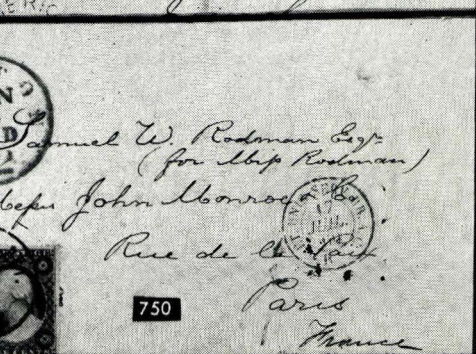 Samuel W. Rodman Esqr
(for Miss Rodman)
John Monroe & Co.
Rue de la Paix
750
Paris
France